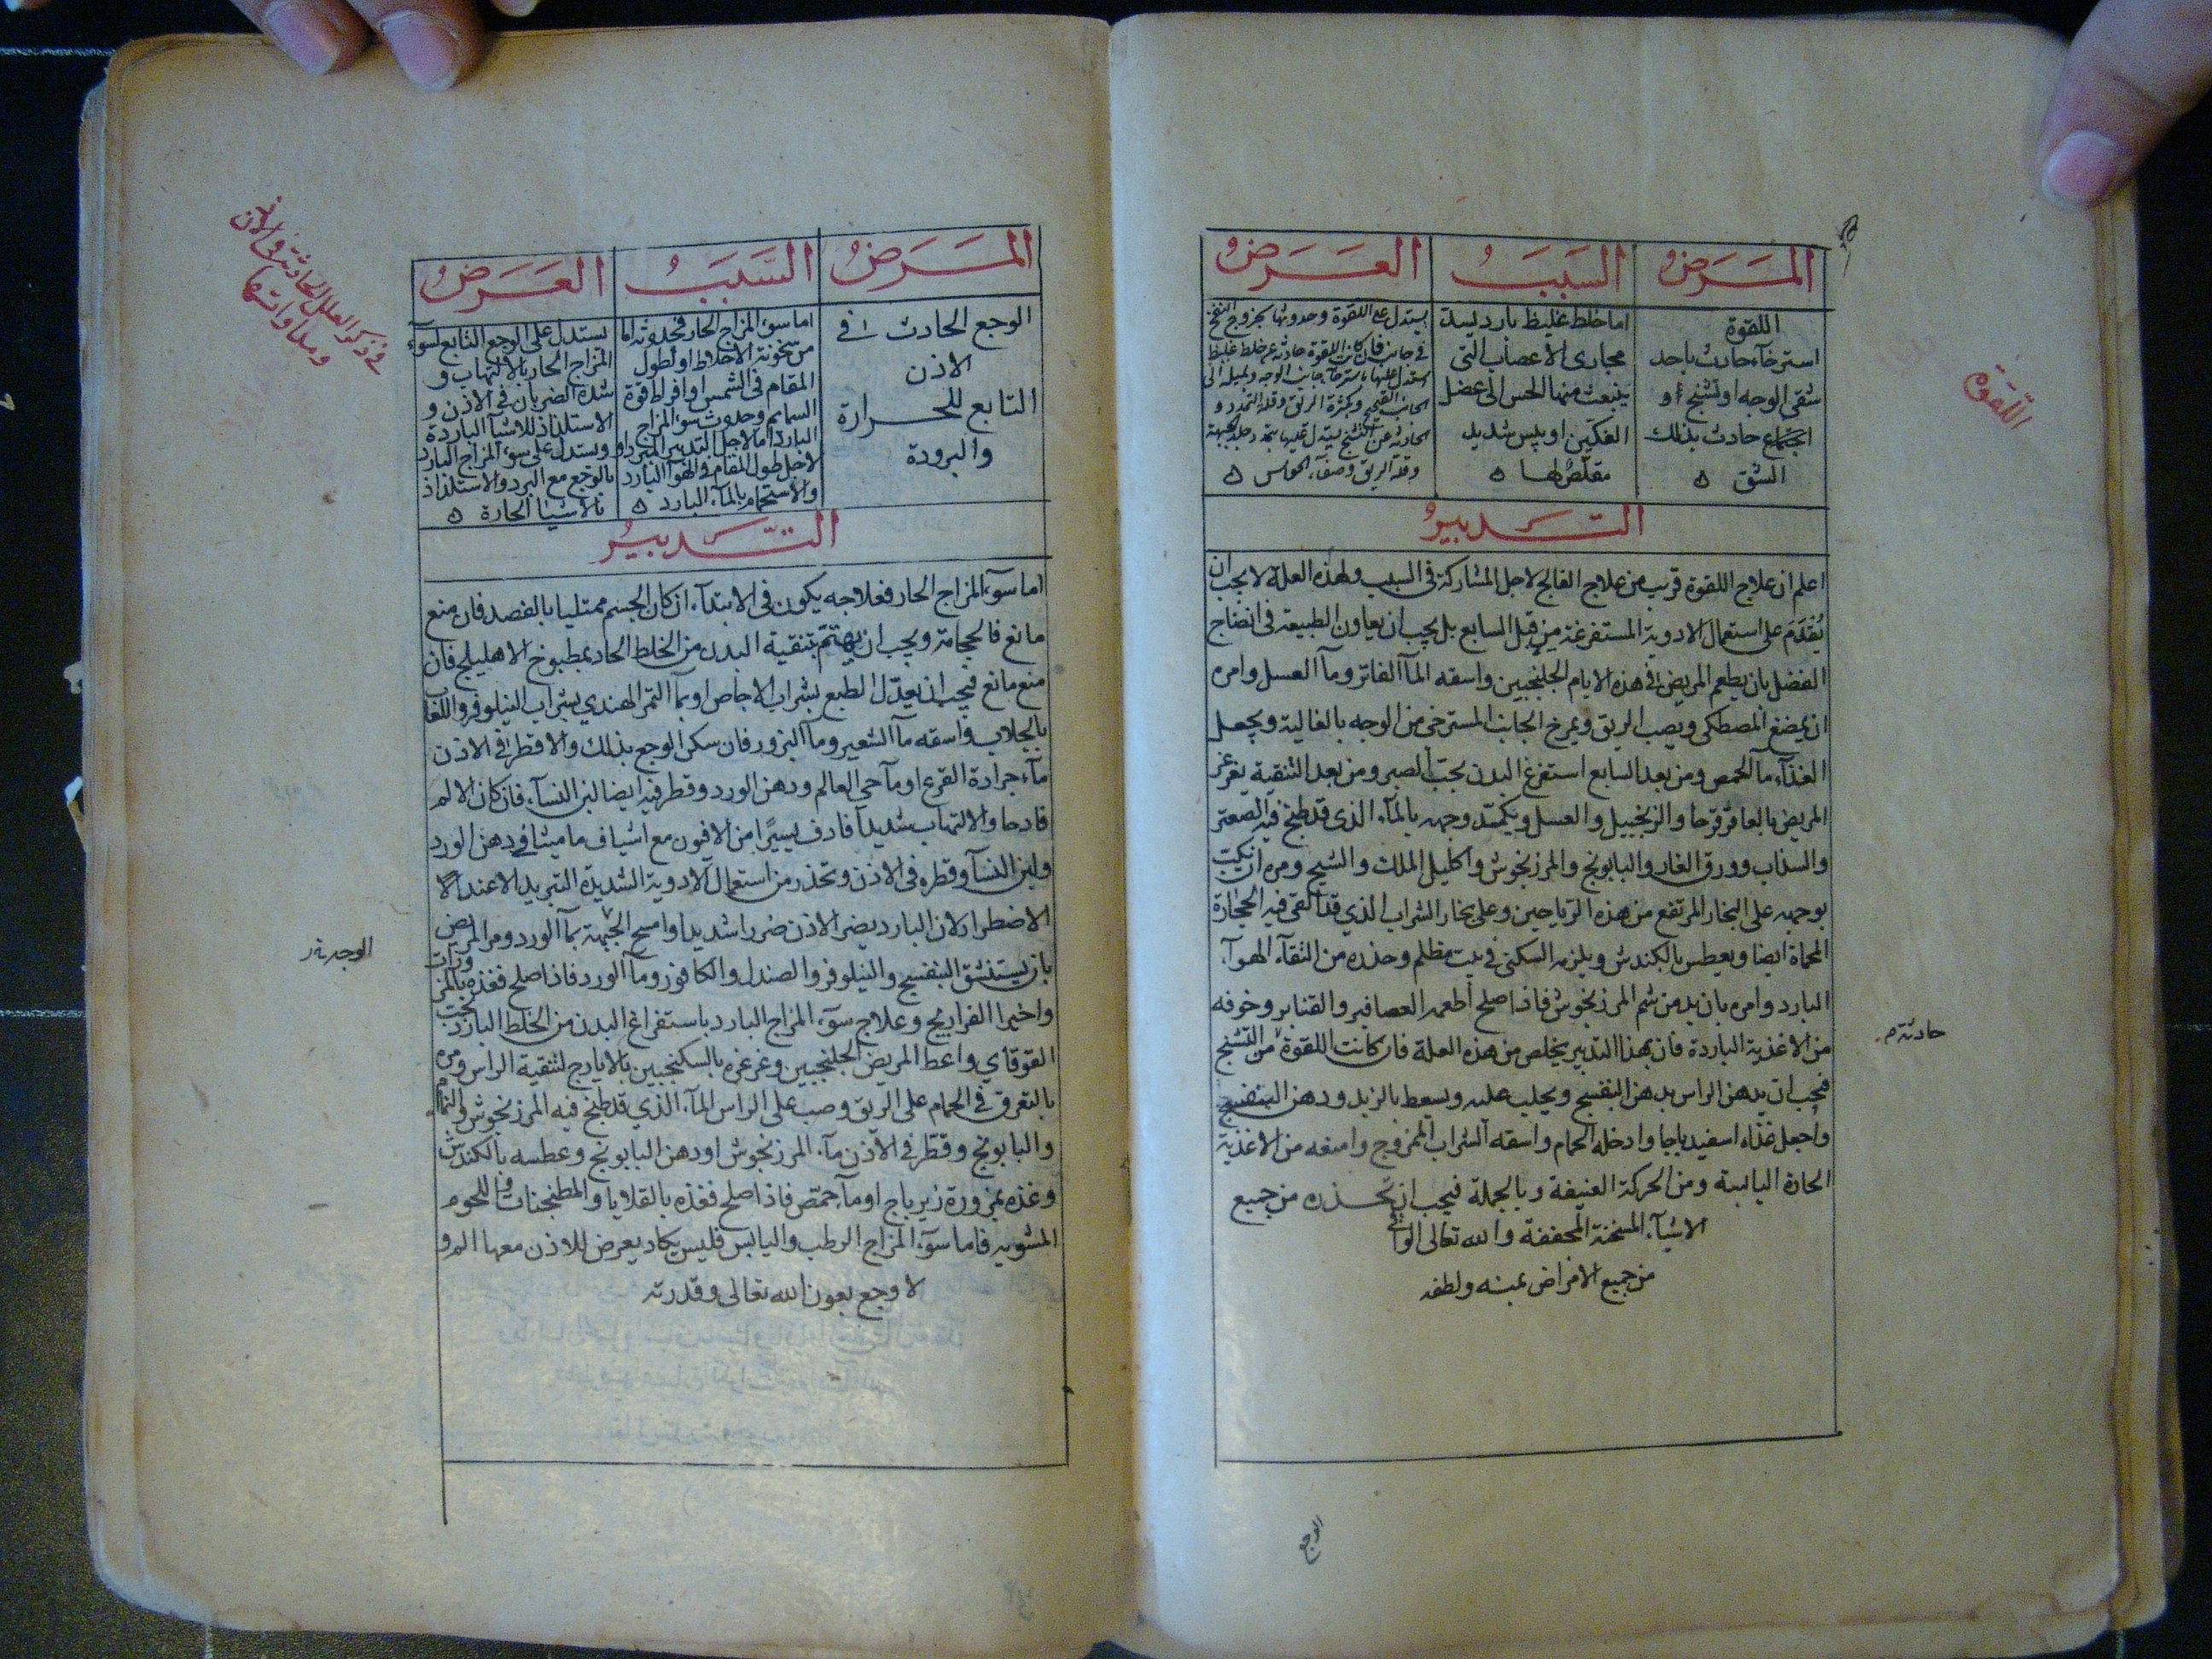 اللقوة
المرض
السبب
العرض
اللقوة
استرخآء حادث باحد
شقى الوجه او تشنج او
اجتماع حادث بذلك
الشق
اما خلط غليظ بارد يسد
مجارى الاعصاب التى
ينبعث منها الحس الى عضل
الفكين او يبس شديد
مقلص لها
يستدل على اللقوة وحدوثها بخروج النفخ
فى جانب فان كانت اللقوة حادثة عن خلط غليظ
استدل عليها باسترخآء جانب الوجه وبميله الى
الجانب الصحيح وبكثرة الريق وقلة التمدد و
الحادثة عن التشنج يستدل عليها بتمدد جلد الجبهة
وقلة الريق وصفآء الحواس
التدبير
اعلم ان علاج اللقوة قريب من علاج الفالج لاجل المشاركة فى السبب ولهذه العلة لا يجب ان
يُقْدَمَ على استعمال الادوية المستفرغة من قبل السابع بل يجب ان يعاون الطبيعة فى انضاج
الفضل بان يطعم المريض فى هذه الايام الجلنجبين واسقه المآ الفاتر ومآ العسل وامره
ان يمضغ المصطكى ويصب الريق ويمرخ الجانب المسترخى من الوجه بالغالية ويجعل
الغذآء مآ الحمص ومن بعد السابع استفرغ البدن بحب الصبر ومن بعد التنقية يغرغر
المريض بالعاقرقرحا والزنجبيل والعسل ويكمد وجهه بالمآء الذى قد طبخ فيه الصعتر
والسذاب وورق الغار والبابونج والمرزنجوش واكليل الملك والشيح ومره ان يكب
بوجهه على البخار المرتفع من هذه الرياحين وعلى بخار الشراب الذي قد القى فيه الحجارة
المحماة ايضا ويعطس بالكندش ويلزمه السكنى فى بيت مظلم وحذره من التقآء الهوآء
البارد وامره بان يدمن شم المرزنجوش فاذا صلح أطعمه العصافير والقنابر وخوفه
من الاغذية الباردة فان بهذا التدبير يخلص من هذه العلة فان كانت اللقوة من التشنج
حادثة
فيجب ان يدهن الراس بدهن البنفسج ويحلب عليه ويسعط بالزبد ودهن البنفسج
واجعل غذاه اسفيدباجا وادخله الحمام واسقه الشراب الممزوج وامنعه من الاغذية
الحارة اليابسة ومن الحركة العنيفة وبالجملة فيجب ان تحذره من جميع
الاشيآء المسخنة المجففة والله تعالى الواقى
من جميع الامراض بمنه ولطفه
الوجع
فى ذكر العلل الحادثة فى الاذن
ومداواتها
المرض
السبب
العرض
الوجع الحادث فى
الاذن
التابع للحرارة
والبرودة
اما سوء المزاج الحار فحدوثه اما
من سخونة الاخلاط او لطول
المقام فى الشمس او افراط قوة
السمايم وحدوث سوء المزاج
البارد اما لاجل التدبير المبرد او
لاجل طول المقام فى الهوآ البارد
والاستحمام بالمآء البارد
يستدل على الوجع التابع لسوء
المزاج الحار بالالتهاب و
شدة الضربان فى الاذن و
الاستلذاذ للاشيآ الباردة
ويستدل على سوء المزاج البارد
بالوجع مع البرد والاستلذاذ
بالاشيا الحارة
التدبير
اما سوء المزاج الحار فعلاجه يكون فى الابتدآء ان كان الجسم ممتليا بالفصد فان منع
مانع فالحجامة ويجب ان يهتم بتنقية البدن من الخلط الحاد بمطبوخ الاهليلج فان
منع مانع فيجب ان يعدل الطبع بشراب الاجاص او بمآ التمر الهندي بشراب النيلوفر واللعاب
بالجلاب واسقه مآ الشعير ومآ البزور فان سكن الوجع بذلك والا قطر فى الاذن
مآء جرادة القرع او مآ حى العالم ودهن الورد وقطر فيه ايضا لبن النسآء فان كان الالم
قادحا والالتهاب شديدا فادف يسيرًا من الافيون مع اشياف ماميثا فى دهن الورد
ولبن النسآ وقطره فى الاذن وتحذر من استعمال الادوية الشديدة التبريد الا عند
الاضطرار لان البارد يضر الاذن ضررا شديدا وامسح الجبهة بمآ الورد ومر المريض
بان يستنشق البنفسج والنيلوفر والصندل والكافور ومآ الورد فاذا صلح فغذه بالمزورات
واخيرا الفراريج وعلاج سوء المزاج البارد باستفراغ البدن من الخلط البارد بحب
القوقاي واعط المريض الجلنجبين وغرغره بالسكنجبين بالايارج لتنقية الراس ومره
بالتعرق فى الحمام على الريق وصب على الراس المآء الذي قد طبخ فيه المرزنجوش والنمام
والبابونج وقطر فى الاذن مآء المرزنجوش او دهن البابونج وعطسه بالكندش
وغذه بمزورة زيرباج او مآ حمص فاذا صلح فغذه بالقلايا والمطنجنات واللحوم
المشويه فاما سوء المزاج الرطب واليابس فليس يكاد يعرض للاذن معها الم و
لا وجع بعون الله تعالى وقدرته